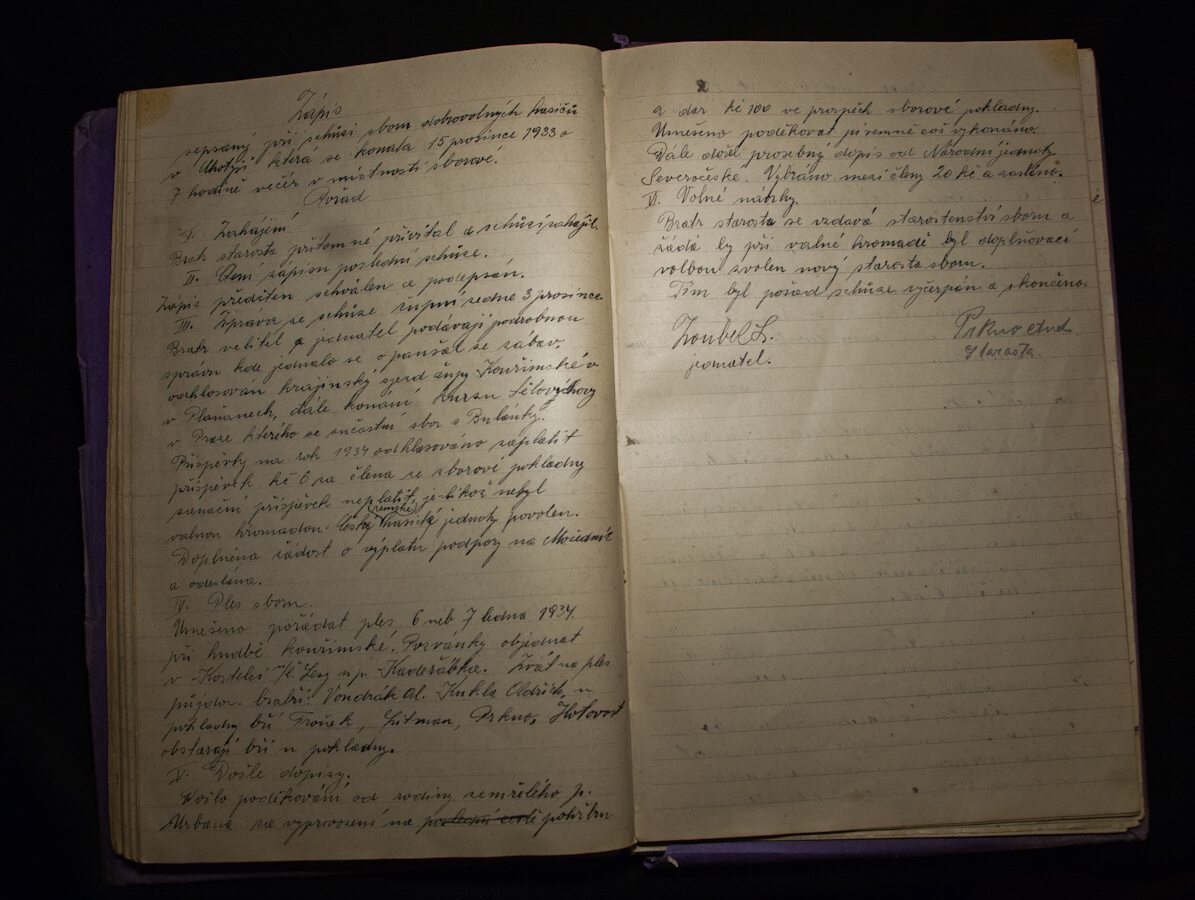 Zápis
sepsaný při schůzi sboru dobrovolných hasičů
v Chotýši která se konala 15 prosince 1933 o
7 hodině večer v místnosti sborové.
Pořad
I. Zahájení
Bratr starosta přítomné přivítal a schůzi zahájil.
II. Čtení zápisu poslední schůze.
Zápis předčten schválen a podepsán.
III. Zpráva ze schůze župní ze dne 3 prosince.
Bratr velitel a jednatel podávají podrobnou
zprávu kde jednalo se o paušál ze zábav,
odhlasován krajinský sjezd župy Kouřimské v
v Plaňanech, dále konání kursu tělovýchovy
v Praze kterého se súčastní sbor z Bylánky.
Příspěvky na rok 1934 odhlasováno zaplatit
příspěvek Kč 6 za člena ze sborové pokladny
sanační příspěvek neplatit, jelikož nebyl
valnou hromadou české (zemské) hasičské jednoty povolen.
Doplněna žádost o výplatu podpory na Močedník
a odeslána.
IV. Ples sboru.
Usnešeno pořádat ples 6 neb 7 ledna 1934.
při hudbě kouřimské. Pozvánky objednat
v Kostelci n/Č. Lesy u p. Kadeřábka. Zvát na ples
půjdou bratři: Vondrák Al. Kukla Oldřich, u
pokladny bří Trošek, Litman, Prkno, Hotovost
obstarají bří u pokladny.
V. Došlé dopisy.
Došlo poděkování od rodiny zemřelého p.
Urbana za vyprovození na poslední cestě pohřbu
a dar Kč 100 ve prospěch sborové pokladny.
Usnešeno poděkovat písemně což vykonáno.
Dále došel prosebný dopis od Národní jednoty
Severočeské. Vybráno mezi členy 20 Kč a zasláno.
VI. Volné návrhy.
Bratr starosta se vzdává starostenství sboru a
žádá by při valné hromadě byl doplňovací
volbou zvolen nový starosta sboru.
Tím byl pořad schůze vyčerpán a skončeno.
Zoubek L.
jednatel.
Prkno
starosta.